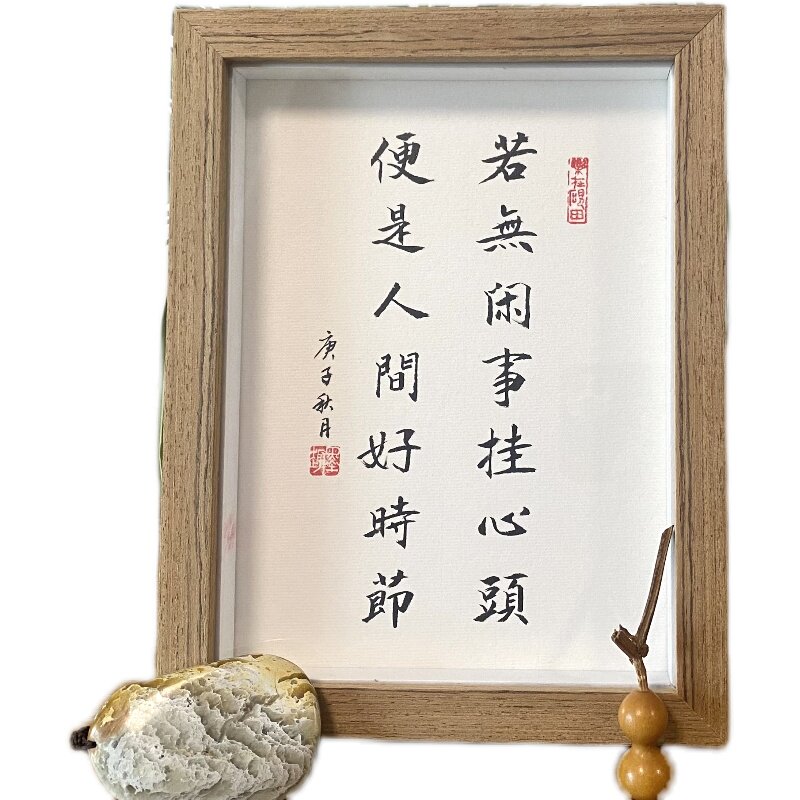 樂在硯田
若無閑事挂心頭
便是人間好時節
庚子秋月